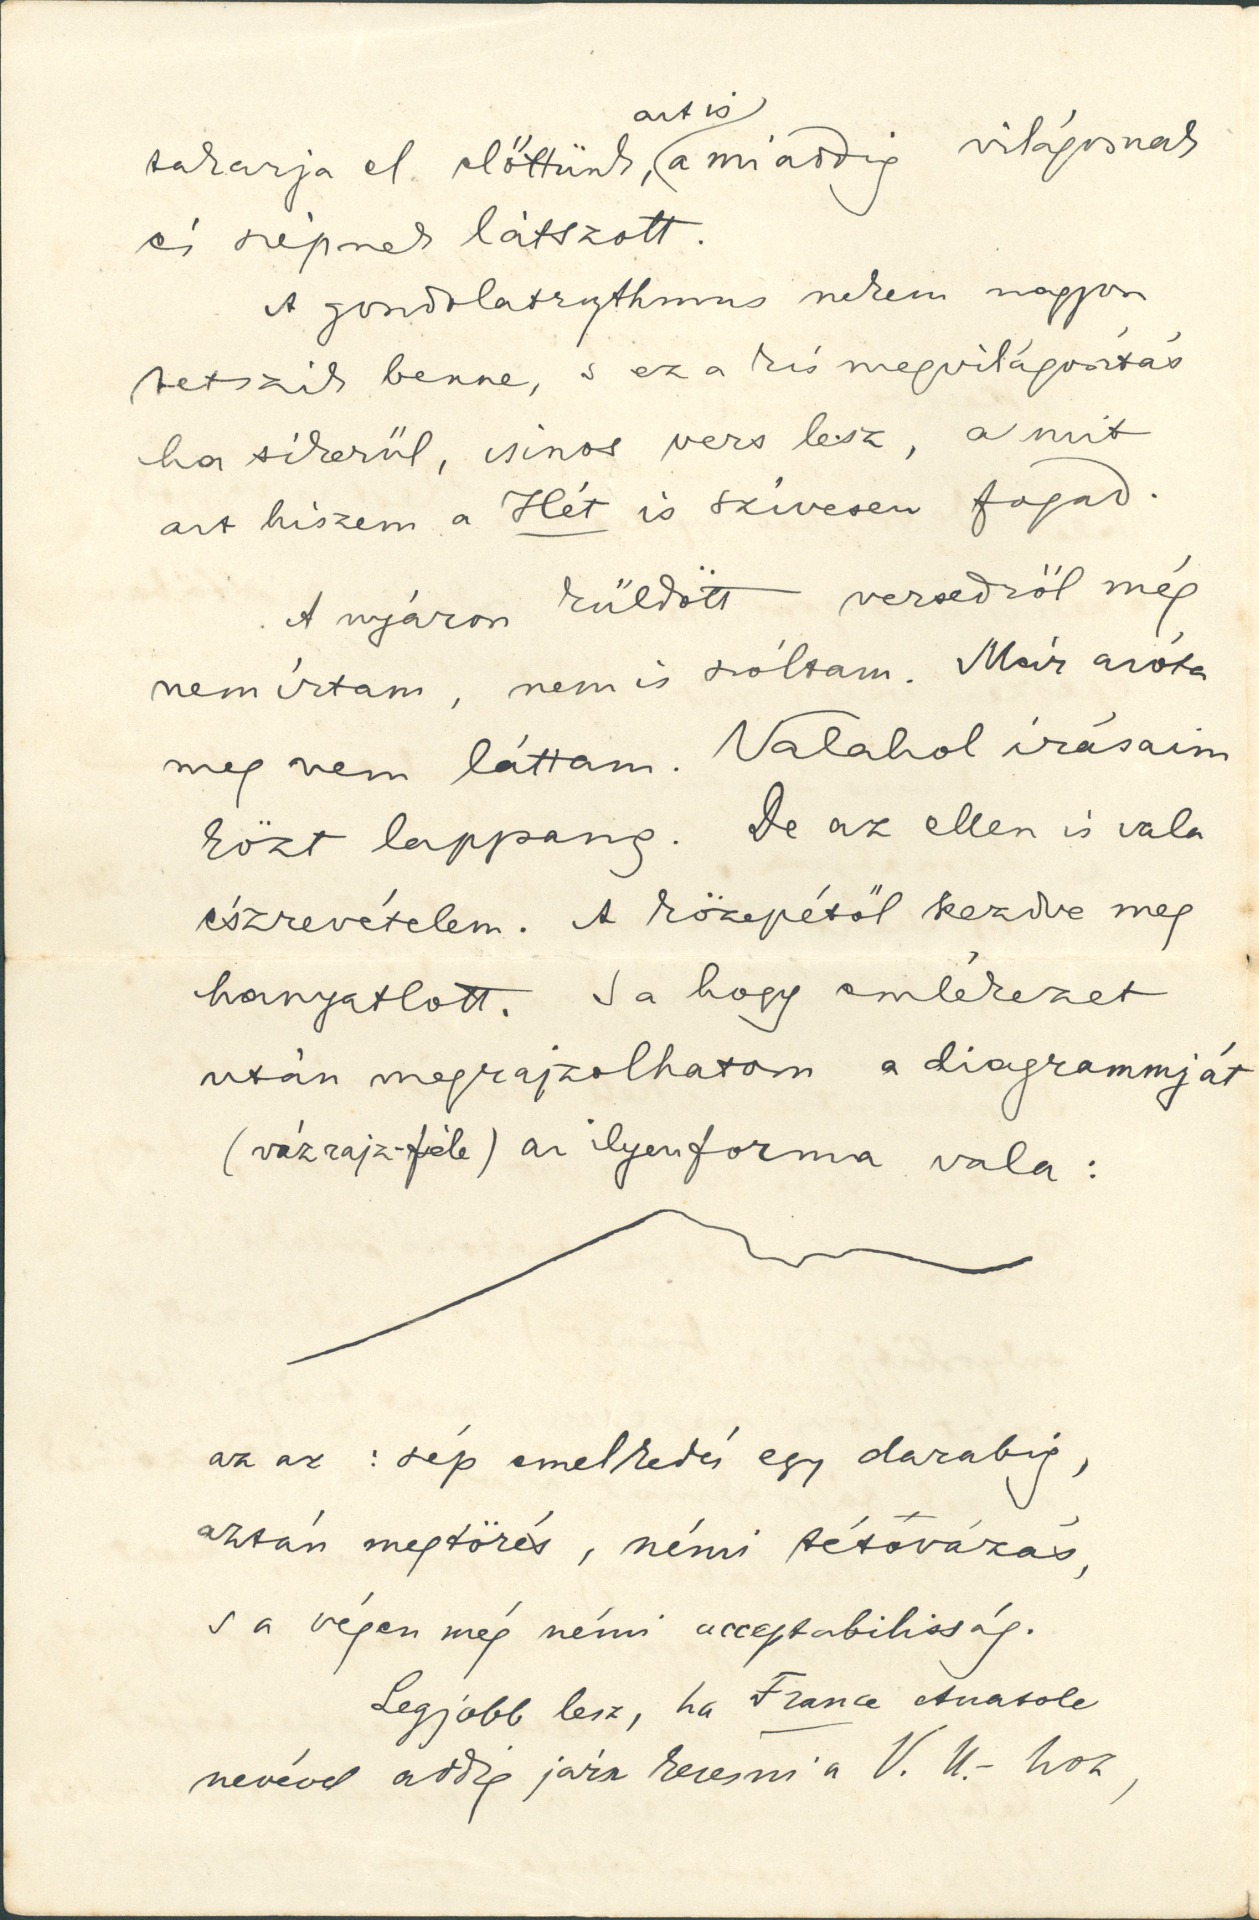 azt is
takarja el előttünk, a mi addig világosnak
és szépnek látszott.
A gondolatrythmus nekem nagyon
tetszik benne, s ez a kis megvilágosítás
ha sikerül, csinos vers lesz, a mit
azt hiszem a Hét is szívesen fogad.
A nyáron küldött versedről még
nem írtam, nem is szóltam. Már azóta
meg nem láttam. Valahol írásaim
közt lappang. De az ellen is vala
észrevételem. A közepétől kezdve meg
hanyatlott. S a hogy emlékezet
után megrajzolhatom a diagrammját
(vázrajz-féle) az ilyenforma vala:
az az : szép emelkedés egy darabig,
aztán megtörés, némi tétovázás,
s a végen még némi acceptabilisság.
Legjobb lesz, ha France Anatole
nevével addig jársz keresni a V. U.- hoz,